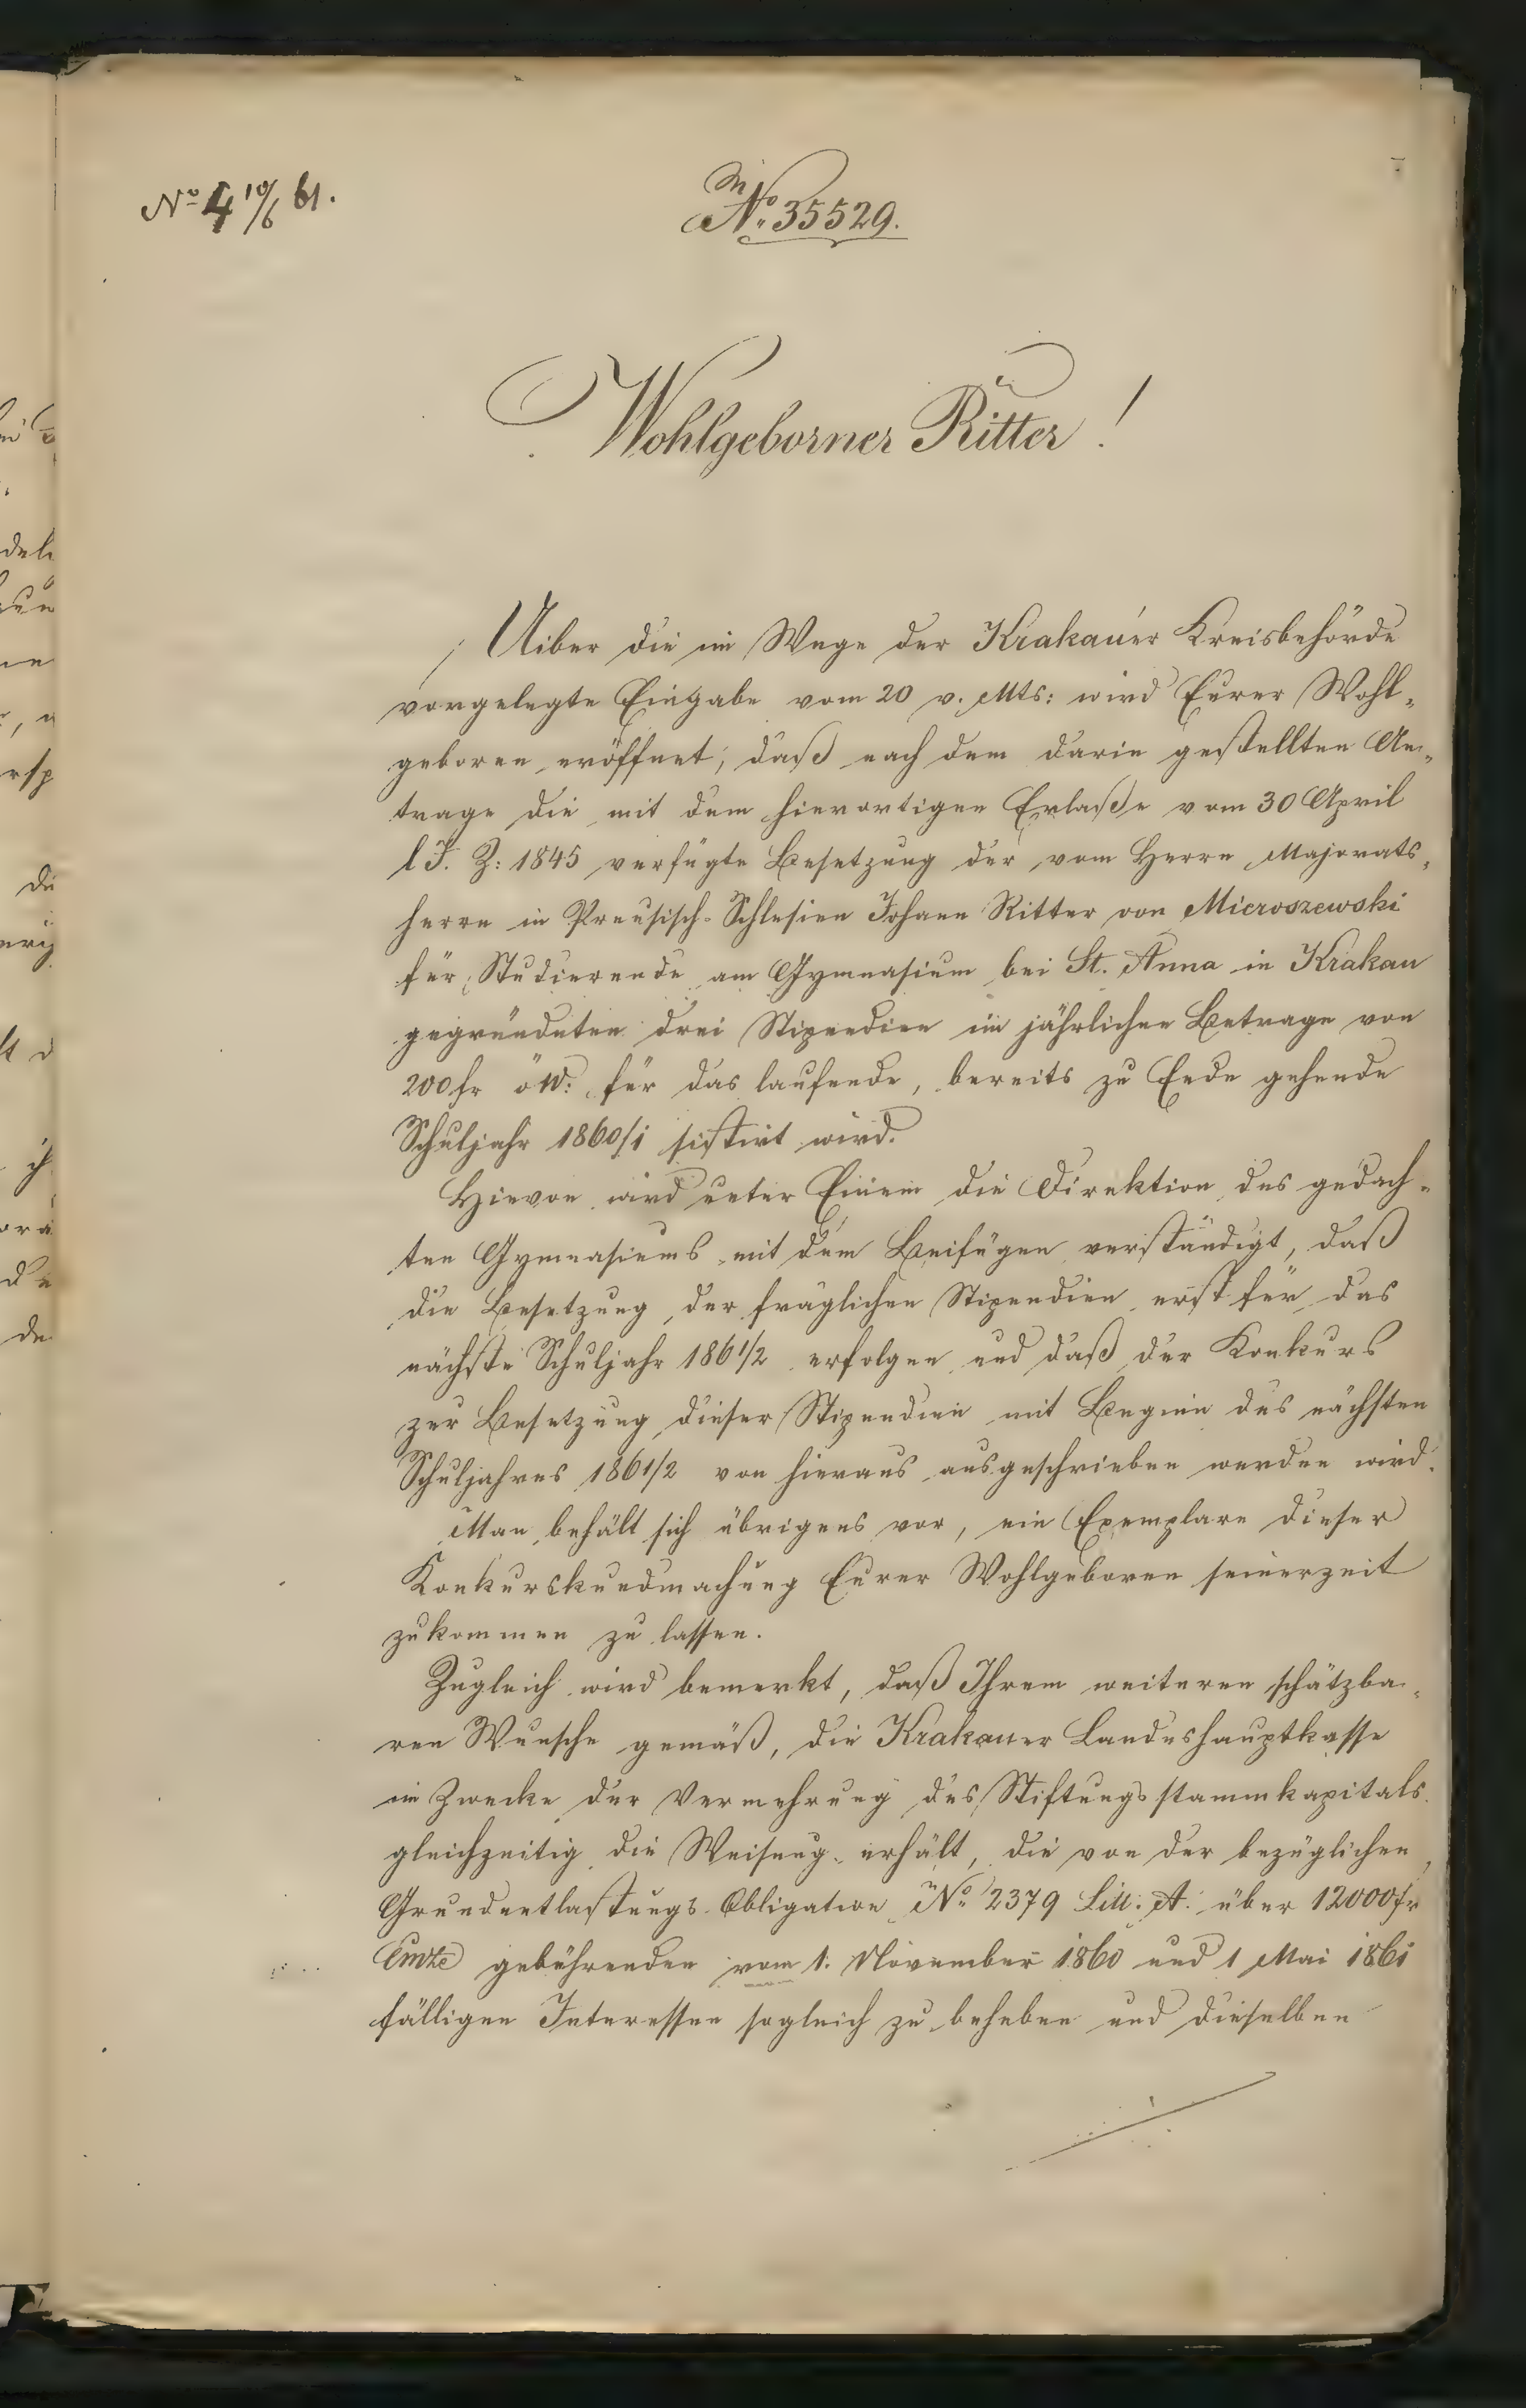 No 4 10/6 61.
No. 35529.
Wohlgeborner Ritter!
Uiber die im Wege der Krakauer Kreisbehörde
vorgelegte Eingabe vom 20 v. Mts: wird Eurer Wohl-
geboren eröffnet, daß nach dem darin gestellten An-
trage die mit dem hierortigen Erlaße vom 30 April
l J. Z: 1845 verfügte Besetzung der vom Herrn Majorats-
herrn in Preusisch-Schlesien Johann Ritter von Mieroszewski
für Studierende am Gymnasium bei St. Anna in Krakau
gegründeten drei Stipendien im jährlichen Betrage von
200 fr öW: für das laufende, bereits zu Ende gehende
Schuljahr 1860/1 sistirt wird.
Hievon wird unter Einem die Direktion des gedach-
ten Gymnasiums mit dem Beifügen verständigt, daß
die Besetzung der fraglichen Stipendien erst für das
nächste Schuljahr 1861/2 erfolgen und daß der Konkurs
zur Besetzung dieser Stipendien mit Beginn des nächsten
Schuljahres 1861/2 von hieraus ausgeschrieben werden wird.
Man behält sich übrigens vor, ein Exemplare dieser
Konkurskundmachung Eurer Wohlgeboren seinerzeit
zukommen zu lassen.
Zugleich wird bemerkt, daß Ihrem weiteren schätzba-
ren Wunsche gemäß, die Krakauer Landeshauptkasse
im Zwecke der Vermehrung des Stiftungsstammkapitals
gleichzeitig die Weisung erhält, die von der bezüglichen
Grundentlastungs-Obligation No 2379 Litt: A. über 12000 fr
CMze gebührenden vom 1. November 1860 und 1 Mai 1861
fälligen Interessen sogleich zu beheben und dieselben